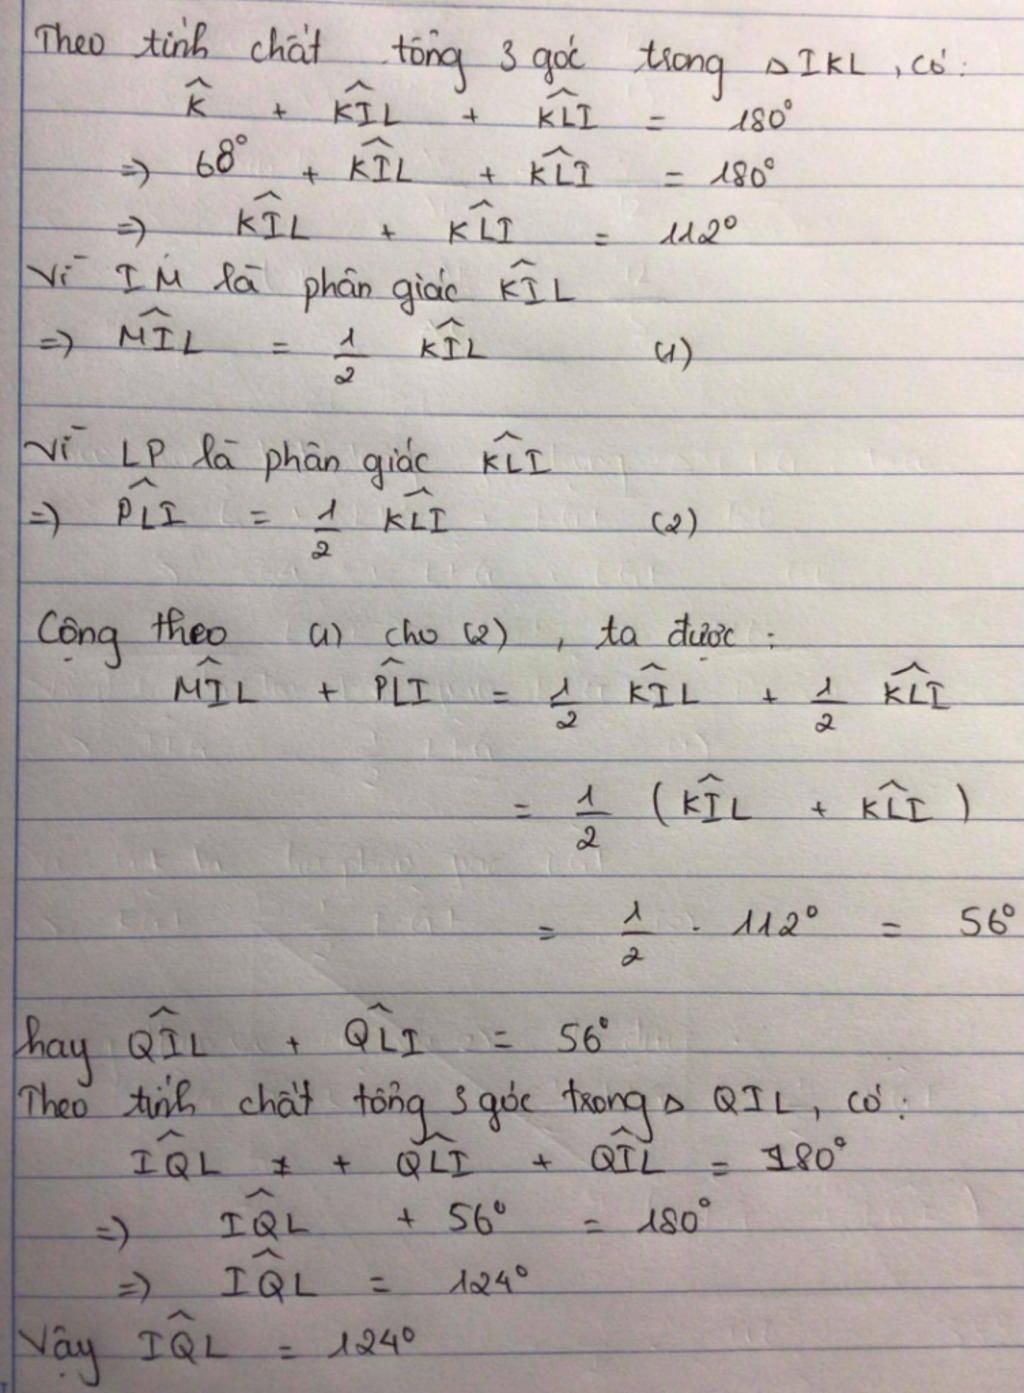 Theo tính chất tổng 3 góc trong △ IKL, có:
K̂ + KÎL + KL̂I = 180°
=> 68° + KÎL + KL̂I = 180°
=> KÎL + KL̂I = 112°
Vì IM là phân giác KÎL
=> MÎL = 1/2 KÎL (1)
Vì LP là phân giác KL̂I
=> PL̂I = 1/2 KL̂I (2)
Cộng theo (1) cho (2), ta được:
MÎL + PL̂I = 1/2 KÎL + 1/2 KL̂I
= 1/2 (KÎL + KL̂I)
= 1/2 . 112° = 56°
hay QÎL + QL̂I = 56°
Theo tính chất tổng 3 góc trong △ QIL, có:
IQ̂L + QL̂I + QÎL = 180°
=> IQ̂L + 56° = 180°
=> IQ̂L = 124°
Vậy IQ̂L = 124°